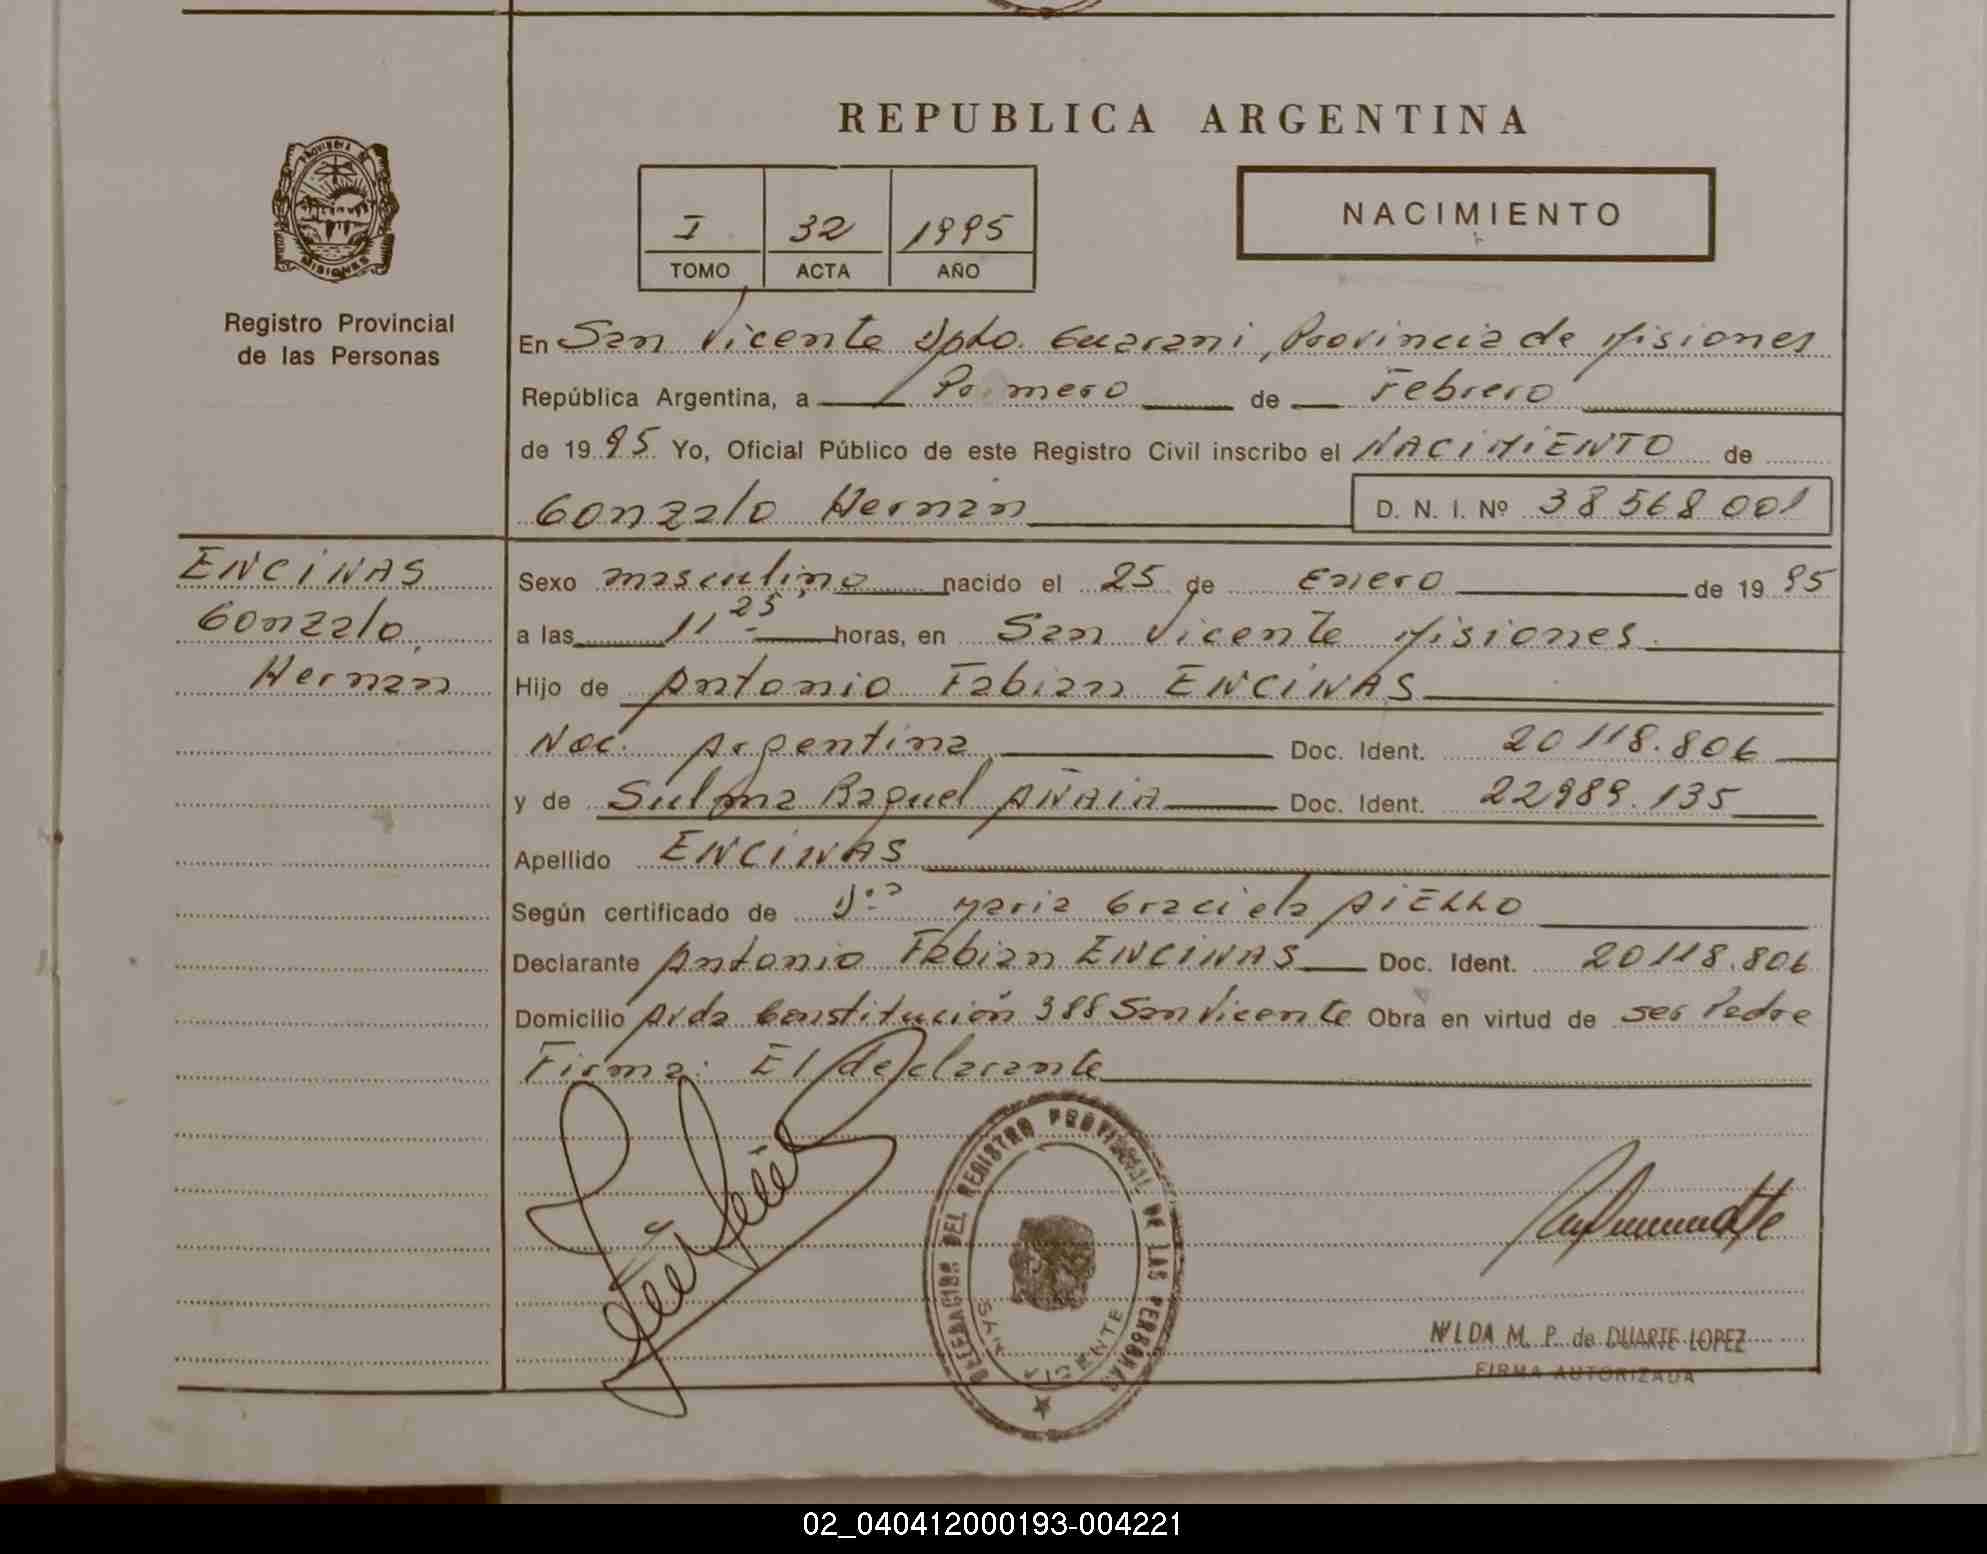 REPUBLICA ARGENTINA
PROVINCIA DE
MISIONES
Registro Provincial
de las Personas
I 32 1995
TOMO ACTA AÑO
NACIMIENTO
En San Vicente Dpto. Guarani, Provincia de Misiones
República Argentina, a Primero de Febrero
de 1995 Yo, Oficial Público de este Registro Civil inscribo el NACIMIENTO de
Gonzalo Hernán D. N. I. Nº 38568001
ENCINAS
Gonzalo
Hernán
Sexo masculino nacido el 25 de Enero de 1995
a las 11 25 horas, en San Vicente Misiones.
Hijo de Antonio Fabian ENCINAS
Nac. Argentina Doc. Ident. 20118.806
y de Sulma Raquel AÑAIA Doc. Ident. 22989.135
Apellido ENCINAS
Según certificado de Dra Maria Graciela AIELLO
Declarante Antonio Fabian ENCINAS Doc. Ident. 20118.806
Domicilio Avda Constitución 388 San Vicente Obra en virtud de ser Padre
Firma: El declarante
DELEGACION DEL REGISTRO PROVINCIAL DE LAS PERSONAS
SAN VICENTE
NILDA M. P. de DUARTE LOPEZ
FIRMA AUTORIZADA
02_040412000193-004221